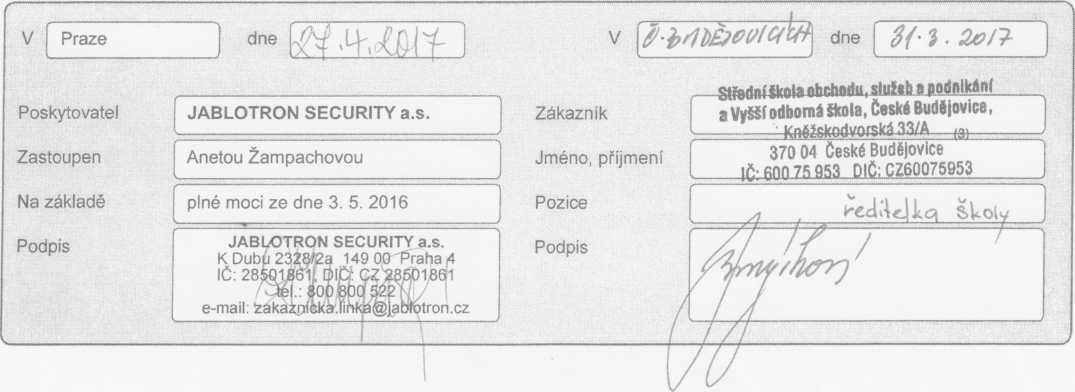 V Praze dne 27.4.2017
V Č. BUDĚJOVICÍCH dne 31.3.2017
Poskytovatel JABLOTRON SECURITY a.s.
Zastoupen Anetou Žampachovou
Na základě plné moci ze dne 3. 5. 2016
Podpis
JABLOTRON SECURITY a.s.
K Dubu 2328/2a 149 00 Praha 4
IČ: 28501861, DIČ: CZ 28501861
tel.: 800 800 522
e-mail: zakaznicka.linka@jablotron.cz
Zákazník
Střední škola obchodu, služeb a podnikání
a Vyšší odborná škola, České Budějovice,
Kněžskodvorská 33/A (3)
370 04 České Budějovice
IČ: 600 75 953 DIČ: CZ60075953
Jméno, příjmení
Pozice ředitelka školy
Podpis